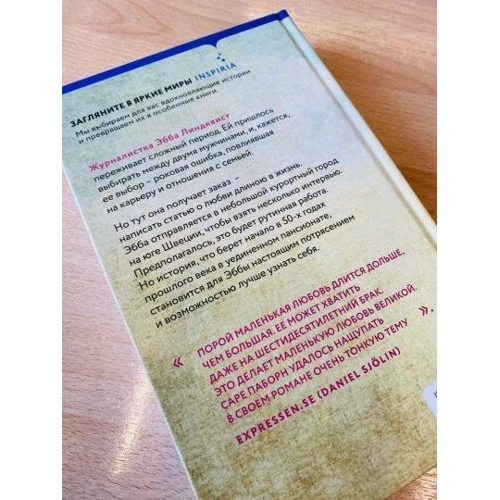 ЗАГЛЯНИТЕ В ЯРКИЕ МИРЫ INSPIRIA
Мы выбираем для вас вдохновляющие истории
и превращаем их в особенные книги.
Журналистка Эбба Линдквист
переживает сложный период. Ей пришлось
выбирать между двумя мужчинами, и, кажется,
ее выбор – роковая ошибка, повлиявшая
на карьеру и отношения с семьей.
Но тут она получает заказ –
написать статью о любви длиною в жизнь.
Эбба отправляется в небольшой курортный город
на юге Швеции, чтобы взять несколько интервью.
Предполагалось, это будет рутинная работа.
Но история, что берет начало в 50-х годах
прошлого века в уединенном пансионате,
становится для Эббы настоящим потрясением
и возможностью лучше узнать себя.
« ПОРОЙ МАЛЕНЬКАЯ ЛЮБОВЬ ДЛИТСЯ ДОЛЬШЕ,
ЧЕМ БОЛЬШАЯ. ЕЕ МОЖЕТ ХВАТИТЬ
ДАЖЕ НА ШЕСТИДЕСЯТИЛЕТНИЙ БРАК.
ЭТО ДЕЛАЕТ МАЛЕНЬКУЮ ЛЮБОВЬ ВЕЛИКОЙ.
САРЕ ПАБОРН УДАЛОСЬ НАЩУПАТЬ
В СВОЕМ РОМАНЕ ОЧЕНЬ ТОНКУЮ ТЕМУ ».
EXPRESSEN.SE (DANIEL SJÖLIN)